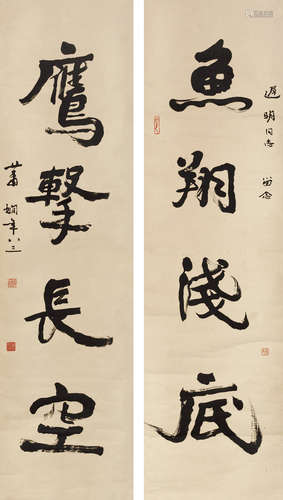 遲明同志 留念
魚翔淺底
鷹擊長空
蕭嫻年八三